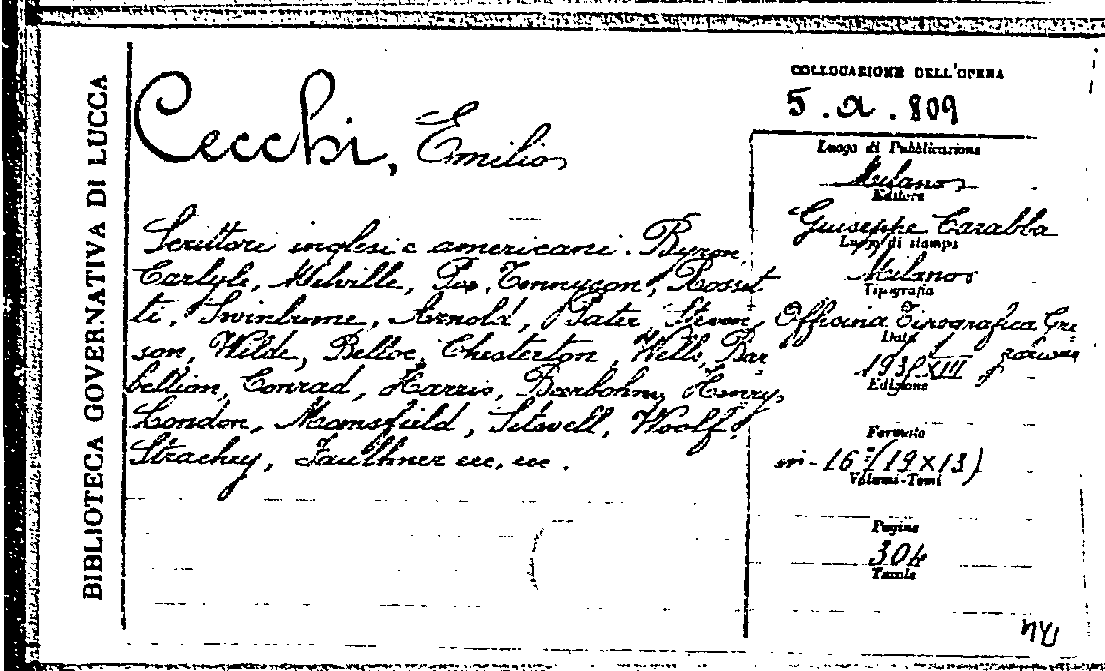 BIBLIOTECA GOVERNATIVA DI LUCCA
Cecchi, Emilio
Scrittori inglesi e americani. Byron,
Carlyle, Melville, Poe, Tennyson, Rosset
ti, Swinburne, Arnold, Pater, Steven
son, Wilde, Belloc, Chesterton, Wells, Bar
bellion, Conrad, Harris, Beerbohm, Henry,
London, Mansfield, Sitwell, Woolf,
Strachey, Faulkner ecc. ecc.
COLLOCAZIONE DELL'OPERA
5. a. 809
Luogo di Pubblicazione
Milano
Editore
Giuseppe Carabba
Luogo di stampa
Milano
Tipografia
Officina Tipografica Gre
Data
goriana
XIII
Edizione
Formato
in-16° (19x13)
Volumi-Tomi
Pagine
304
Tavole